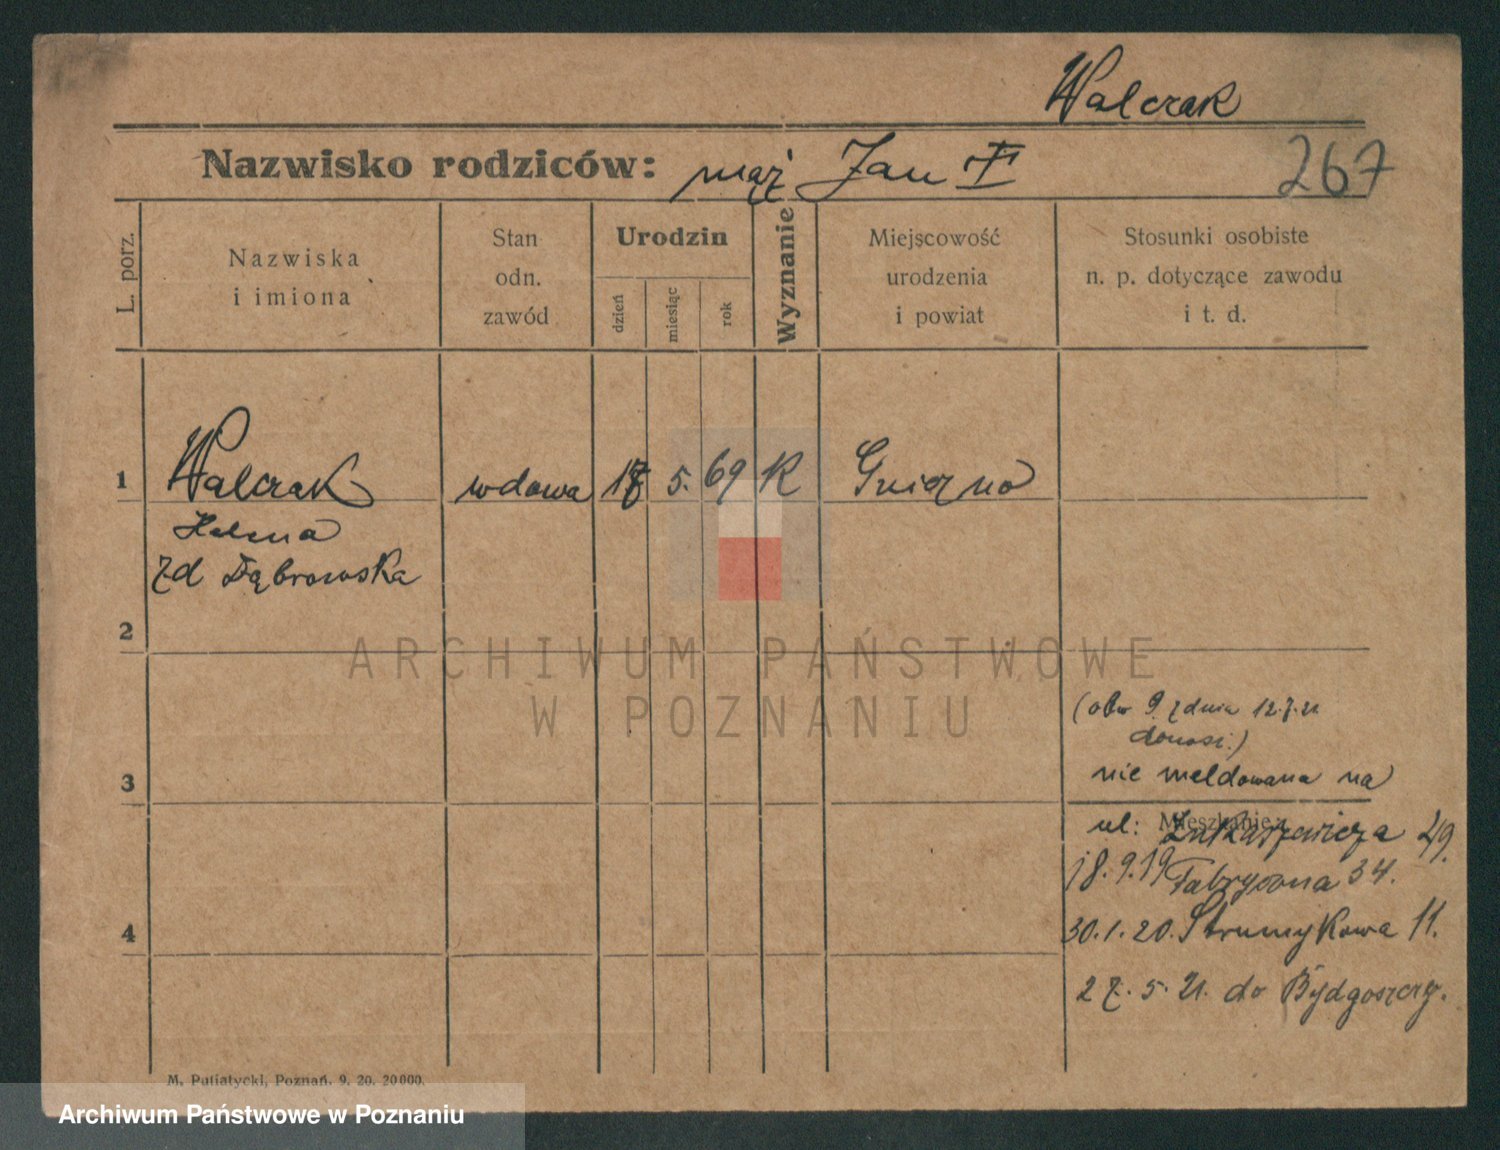 Walczak
Nazwisko rodziców: mąż Jan
267
L. porz.
Nazwiska
i imiona
Stan
odn.
zawód
Urodzin
dzień
miesiąc
rok
Wyznanie
Miejscowość
urodzenia
i powiat
Stosunki osobiste
n. p. dotyczące zawodu
i t. d.
1
Walczak
wdowa
5. 69 K
Gniezno
Helena
zd Dąbrowska
2
ARCHIWUM PAŃSTWOWE
W POZNANIU
z dnia 12.7.21
3
nie meldowana na
ul: Łukaszewicza 49.
18.9.19 Fabryczna 34.
4
30.1.20. Strumykowa 11.
27.5.21. do Bydgoszczy.
M. Putiatycki, Poznań. 9. 20. 20000.
Archiwum Państwowe w Poznaniu